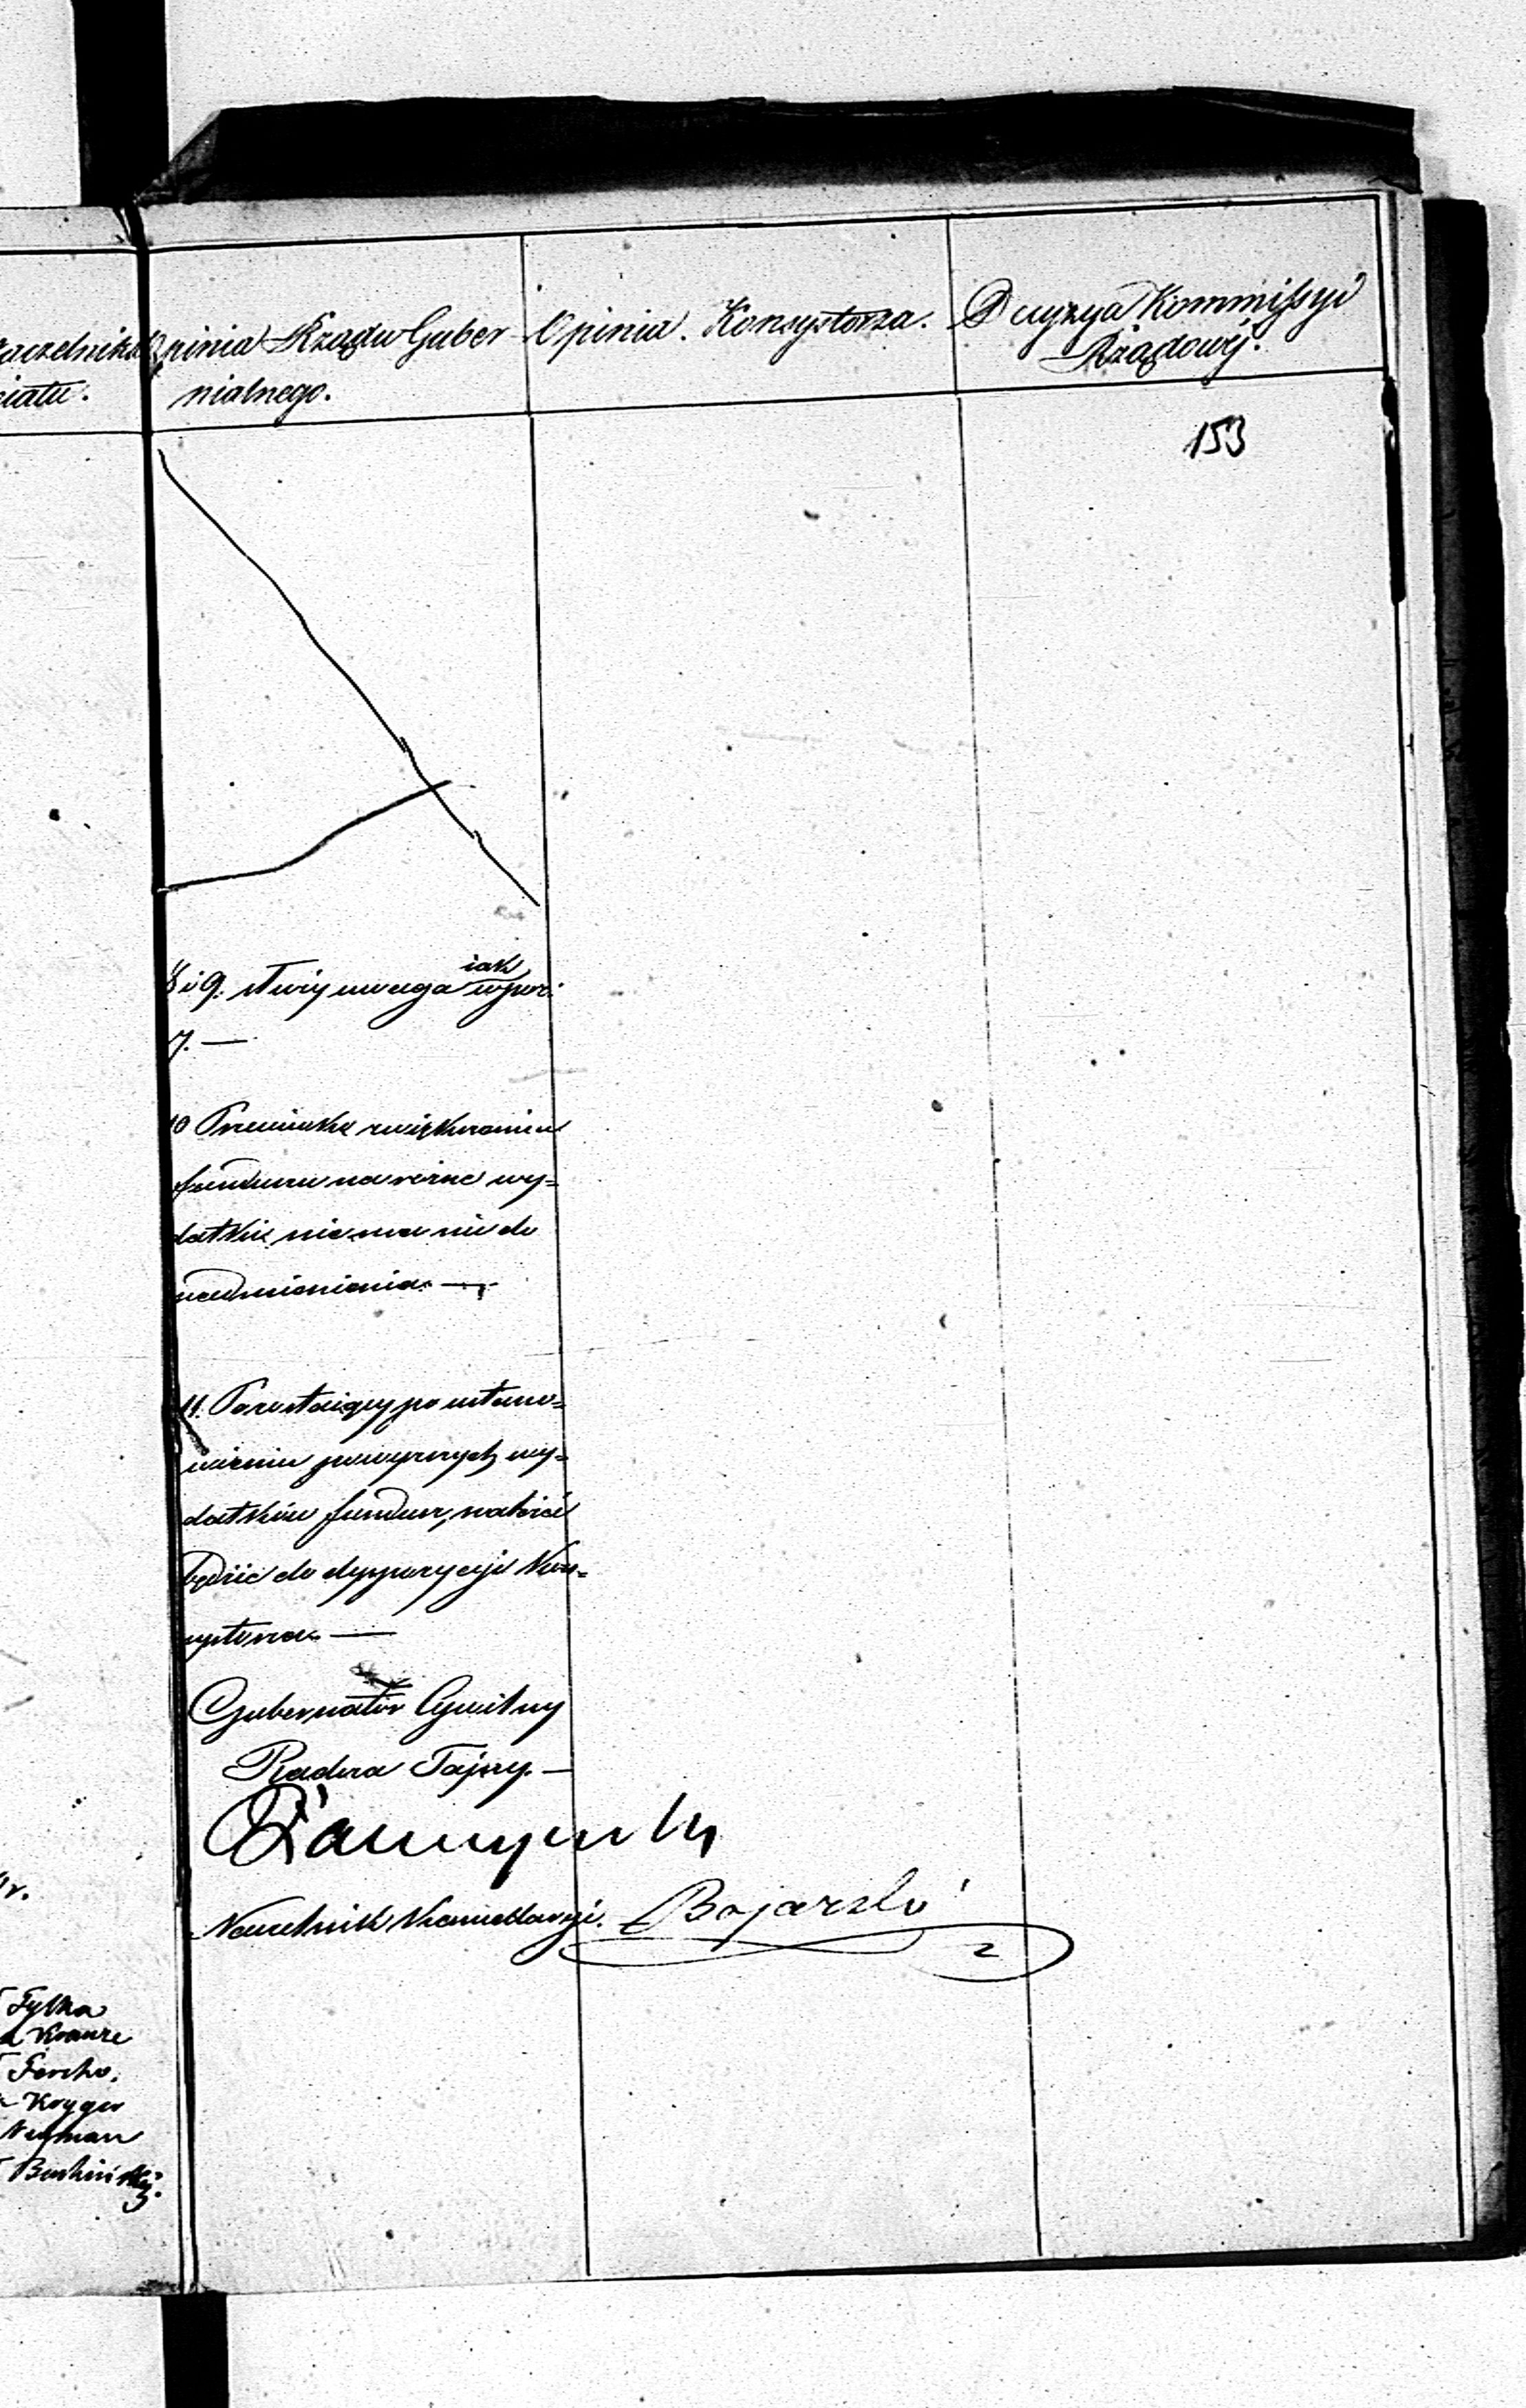 aczelnika
iatu.
Opinia Rządu Guber-
nialnego.
Opinia Konsystorza.
Decyzya Kommissyi
Rządowéj.
153
8 i 9. uwaga jak w poz:
7. —
10 zwiększeniu
funduszu na różne wy=
datki, nie ma nic do
nadmienienia. —
11. Pozostaiący po ustano=
wieniu powyższych wy=
datków fundusz, należeć
będzie do dyspozycyi Kon=
systorza. —
Gubernator Cywilny
Radzca Tajny. —
Naczelnik Kancellaryi.
r.
Tylka
Krauze
Fercho.
Kryger
Neyman